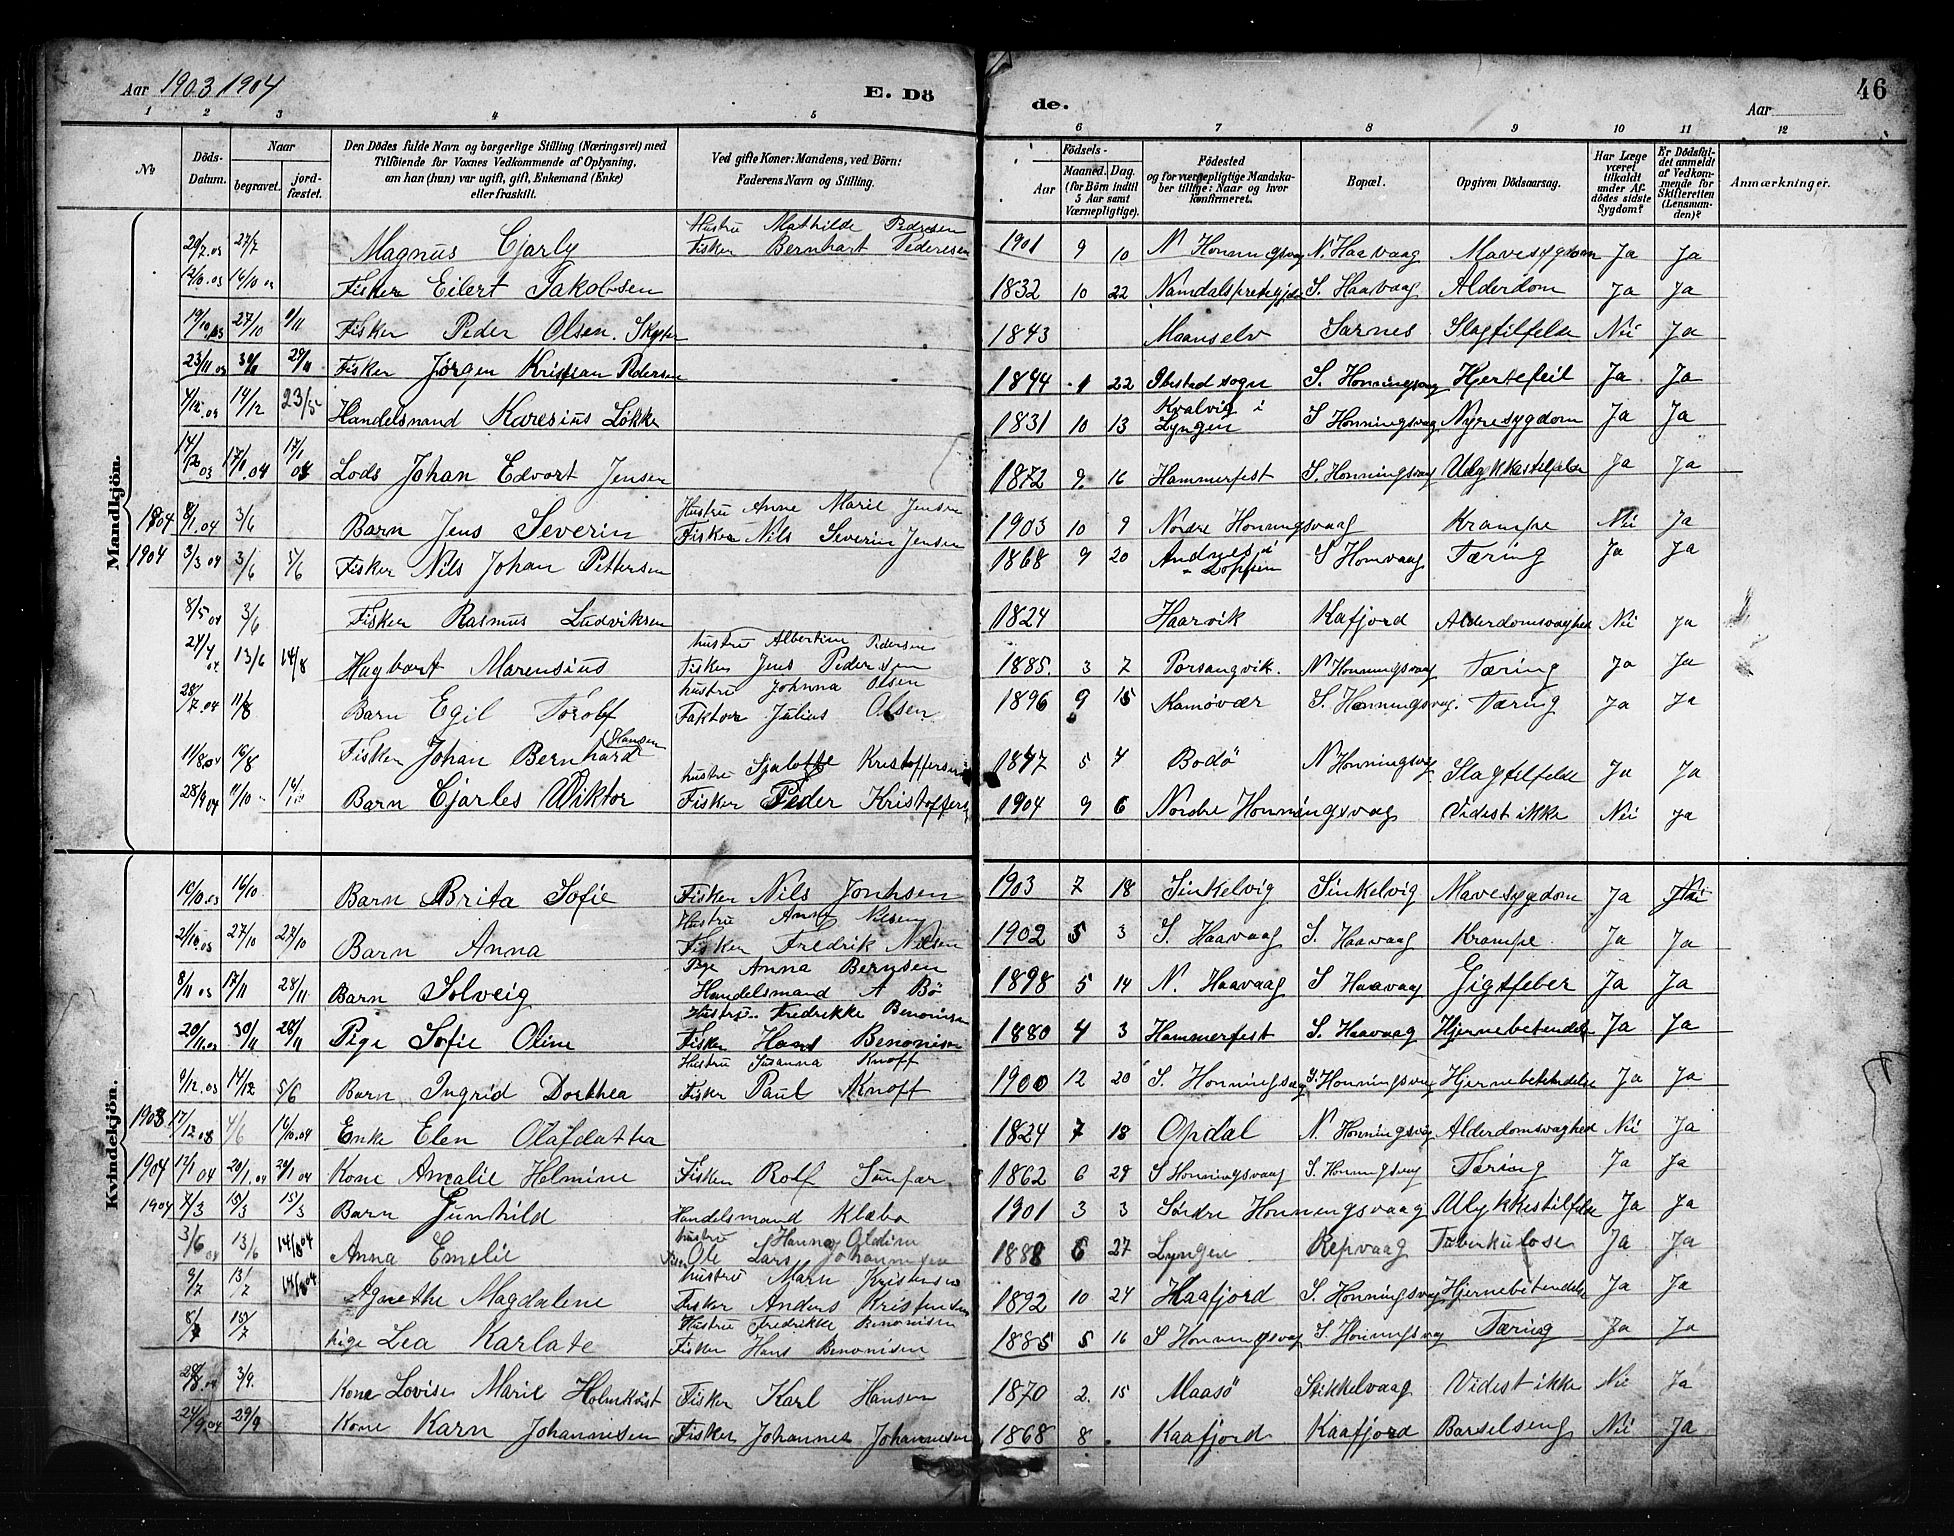 Aar 1903 1904
E. Dö
de.
Aar
46
1 2 3 4 5 6 7 8 9 10 11 12
No
Döds-Datum.
Naar
begravet.
jord-fæstet.
Den Dödes fulde Navn og borgerlige Stilling (Næringsvei) med
Tilföiende for Voxnes Vedkommende af Oplysning,
om han (hun) var ugift, gift, Enkemand (Enke)
eller fraskilt.
Ved gifte Koner: Mandens, ved Börn:
Faderens Navn og Stilling.
Födsels-
Aar
Maaned. Dag.
(for Börn indtil
5 Aar samt
Værnepligtige).
Födested
og for værnepligtige Mandska-
ber tillige: Naar og hvor
konfirmeret.
Bopæl.
Opgiven Dödsaarsag.
Har Læge
været
tilkaldt
under Af-
dödes sidste
Sygdom?
Er Dödsfal-
det anmeldt
af Vedkom-
mende for
Skifteretten
(Lensman-
den)?
Anmærkninger.
Mandkjön.
Hustru Mathilde Pedersen
27/7 Magnus Cjarly Fisker Bernhart Pedersen 1901 9 10 N Honningsvag N. Haavaag Mavesygdom Ja Ja
12/10.03 16/10 03 Fisker Eilert Jakobsen 1832 10 22 S. Haavaag Alderdom Ja Ja
19/10.03 27/10 Fisker Peder Olsen 1843 Maanselv Sarnes Slagtilfelde Nei Ja
23/11 03 29/11 Fisker Jørgen Kristian Pedersen 1844 1 22 Ibestad sogn S. Honningsvag Hjertefeil Ja Ja
14/12 23/5 Handelsmand Karesius Løkke 1831 10 13 Kvalvig i Lyngen S Honningsvag Nyresygdom Ja Ja
17/1.04 17/1 04 Lods Johan Edvart Jensen 1872 9 16 Hammerfest S. Honningsvag Ja Ja
Hustru Anne Marie Jensen
1904 8/1.04 3/6 Barn Jens Severin Fisker Nils Severin Jensen 1903 10 9 Nordre Honningsvaag Krampe Nei Ja
1904 3/3 04 3/6 5/6 Fisker Nils Johan Pettersen 1868 9 20 Andnes i Loppen S Honvaag Tæring Ja Ja
8/5 04 3/6 Fisker Rasmus Ludviksen 1824 Haarvik Kafjord Alderdomsvaghed Nei Ja
hustru Albertine Pedersen
13/6 14/8 Hagbart Marensius Fisker Jens Pedersen 1885. 3 7 Porsangvik. N Honningsvaag Tæring Ja Ja
hustru Johnna Olsen
28/7.04 11/8 Barn Egil Torolf Faktor Julius Olsen 1896 9 15 Kamøvær S. Honningsvag. Tæring Ja Ja
11/8.04 16/8 Fisker Johan Bernhard Hansen 1847 5 4 Bodö N Honningsvag Slagtilfelde Ja Ja
hustru Sjalotte Kristoffersen
28/9 04 11/10 Barn Cjarles Viktor Fisker Peder Kristoffersen 1904 9 6 Nordre Honningsvaag Vides ikke Nei Ja
Kvindekjön.
10/10.03 16/10. Barn Brita Sofie Fisker Nils Jonhsen 1903 7 18 Sinkelvig Sinkelvig Mavesygdom Ja
Hustru Anna Nilsen
27/10 27/10 Barn Anna Fisker Fredrik Nilsen 1902 5 3 S. Haavaag S. Haavaag Krampe Ja Ja
Pige Anna Bernsen
8/11 03 17/11 28/11 Barn Solveig Handelsmand A Bö 1898 5 14 N. Haavaag S Haavaag Gigtfeber Ja Ja
Hustru Fredrikke Benonisen
20/11.03 30/11 28/11 Pige Sofie Oline Fisker Hans Benonisen 1880 4 3 Hammerfest S. Haavaag Hjernebetendelse Ja Ja
Hustru Susanna Knoff
9/12.03 14/12 5/6 Barn Ingrid Dorthea Fisker Paul Knoff 1900 12 20 S. Honningsvag S. Honningsvag Hjernebetendelse Ja Ja
1903 17/12 03 4/6 16/10.04 Enke Elen Olafdatter 1824 7 18 Opdal N. Honningsvag. Alderdomsvaghed Nei Ja
1904 12/1 04 20/1.04 Kone Amalie Helmine Fisker Rolf Sunfær 1862 6 29 S Honningsvaag S. Honningsvag Tæring Ja Ja
1904 7/3 15/3 15/3 Barn Gunhild Handelsmand Klæbo 1901 3 3 Søndre Honningsvaag Ulykkestilfelde Ja Ja
hustru Hanna Oldine
3/6 04 13/6 14/8 04 Anna Emelie Ole Lars Johannesen 1888 6 27 Lyngen Repvaag Tuberkulose Ja Ja
hustru Marn Kristensen
9/7 13/7 Agnethe Magdalene Fisker Anders Kristensen 1892 10 24 Kaafjord S. Honningsvag Hjernebetendelse Ja Ja
Hustru Fredrikke Benonisen
8/7 15/7 Pige Lea Karlate Fisker Hans Benonisen 1885 5 16 S Honningsvag S. Honningsvag Tæring Ja Ja
3/9. Kone Lovise Marie Holmkvist Fisker Karl Hansen 1870 2. 15 Maasö Stikkelvaag Vides ikke Nei Ja
24/9.04 29/9 Kone Karn Johannesen Fisker Johannes Johannesen 1868 8 Kaafjord Kaafjord Barselseng Nei Ja